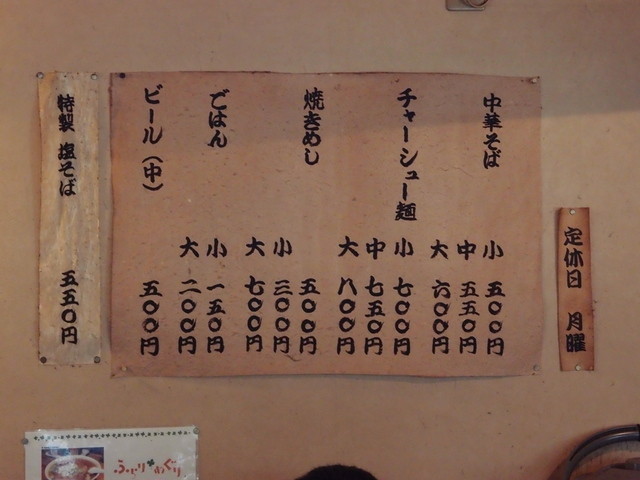 定休日 月曜
中華そば 小 五〇〇円
中 五五〇円
大 六〇〇円
チャーシュー麺 小 七〇〇円
中 七五〇円
大 八〇〇円
焼きめし 五〇〇円
小 三〇〇円
大 七〇〇円
ごはん 小 一五〇円
大 二〇〇円
ビール(中) 五〇〇円
特製 塩そば 五五〇円